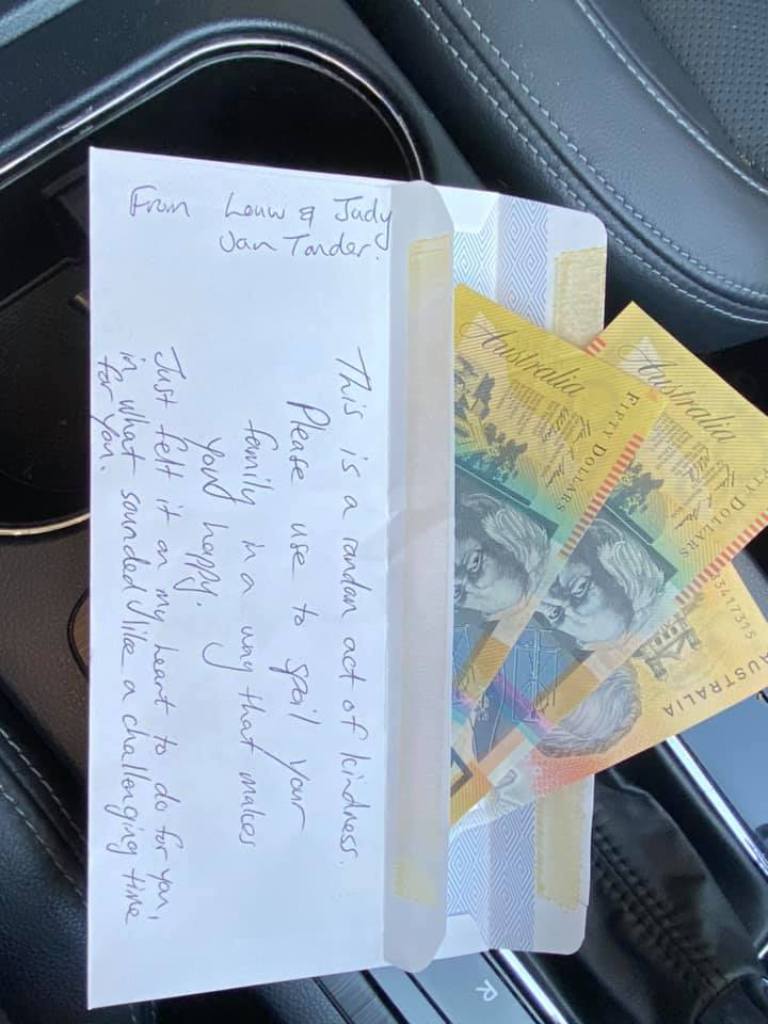 From Louw & Judy
Van Tonder.
This is a random act of kindness.
Please use to spoil your
family in a way that makes
you happy.
Just felt it on my heart to do for you,
in what sounded like a challenging time
for you.
Australia
FIFTY DOLLARS
Australia
TY DOLLARS
3417315
AUSTRALIA
R